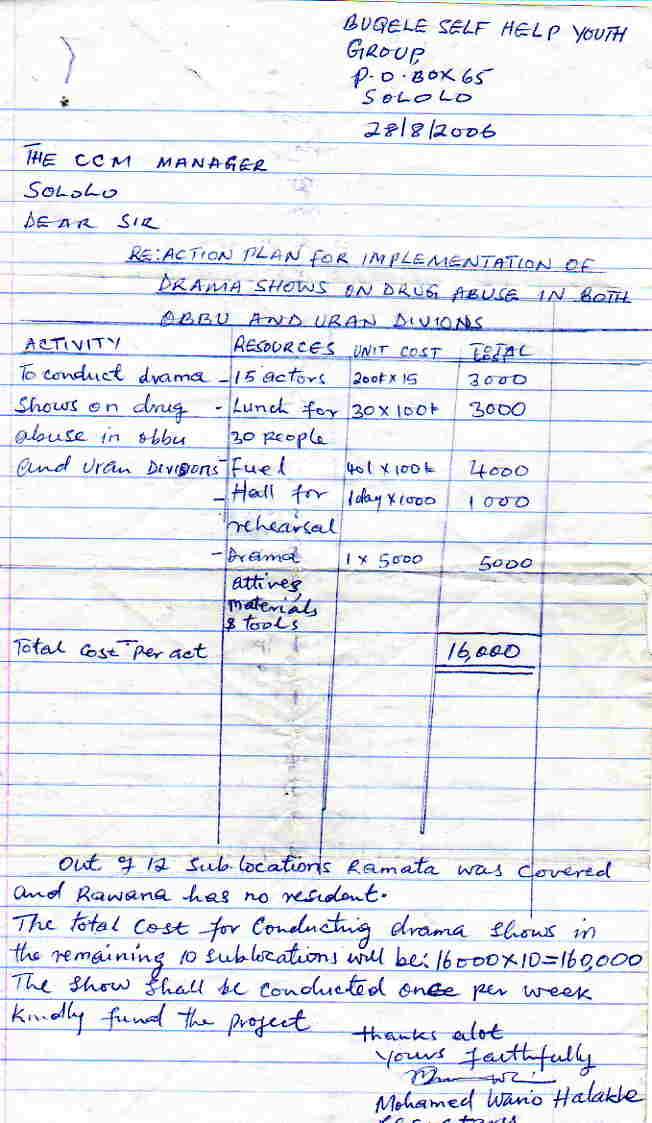 BUQELE SELF HELP YOUTH
GROUP
P.O.BOX 65
SOLOLO
28/8/2006
THE CCM MANAGER
SOLOLO
DEAR SIR
RE: ACTION PLAN FOR IMPLEMENTATION OF
DRAMA SHOWS ON DRUG ABUSE IN BOTH
OBBU AND URAN DIVIONS
ACTIVITY RESOURCES UNIT COST TOTAL
To conduct drama - 15 actors 200k x 15 3000
Shows on drug - Lunch for 30 x 100k 3000
abuse in obbu 30 people
and Uran Divisions - Fuel 40l x 100k 4000
- Hall for 1day x 1000 1000
rehearsal
- Drama 1 x 5000 5000
attires
materials
& tools
Total Cost Per act 16,000
Out of 12 sub.locations Ramata was covered
and Rawana has no resident.
The total cost for Conducting drama shows in
the remaining 10 sublocations will be: 16000x10=160,000
The show shall be conducted once per week
Kindly fund the project
thanks alot
Yours faithfully
Mohamed Wario Halakhe